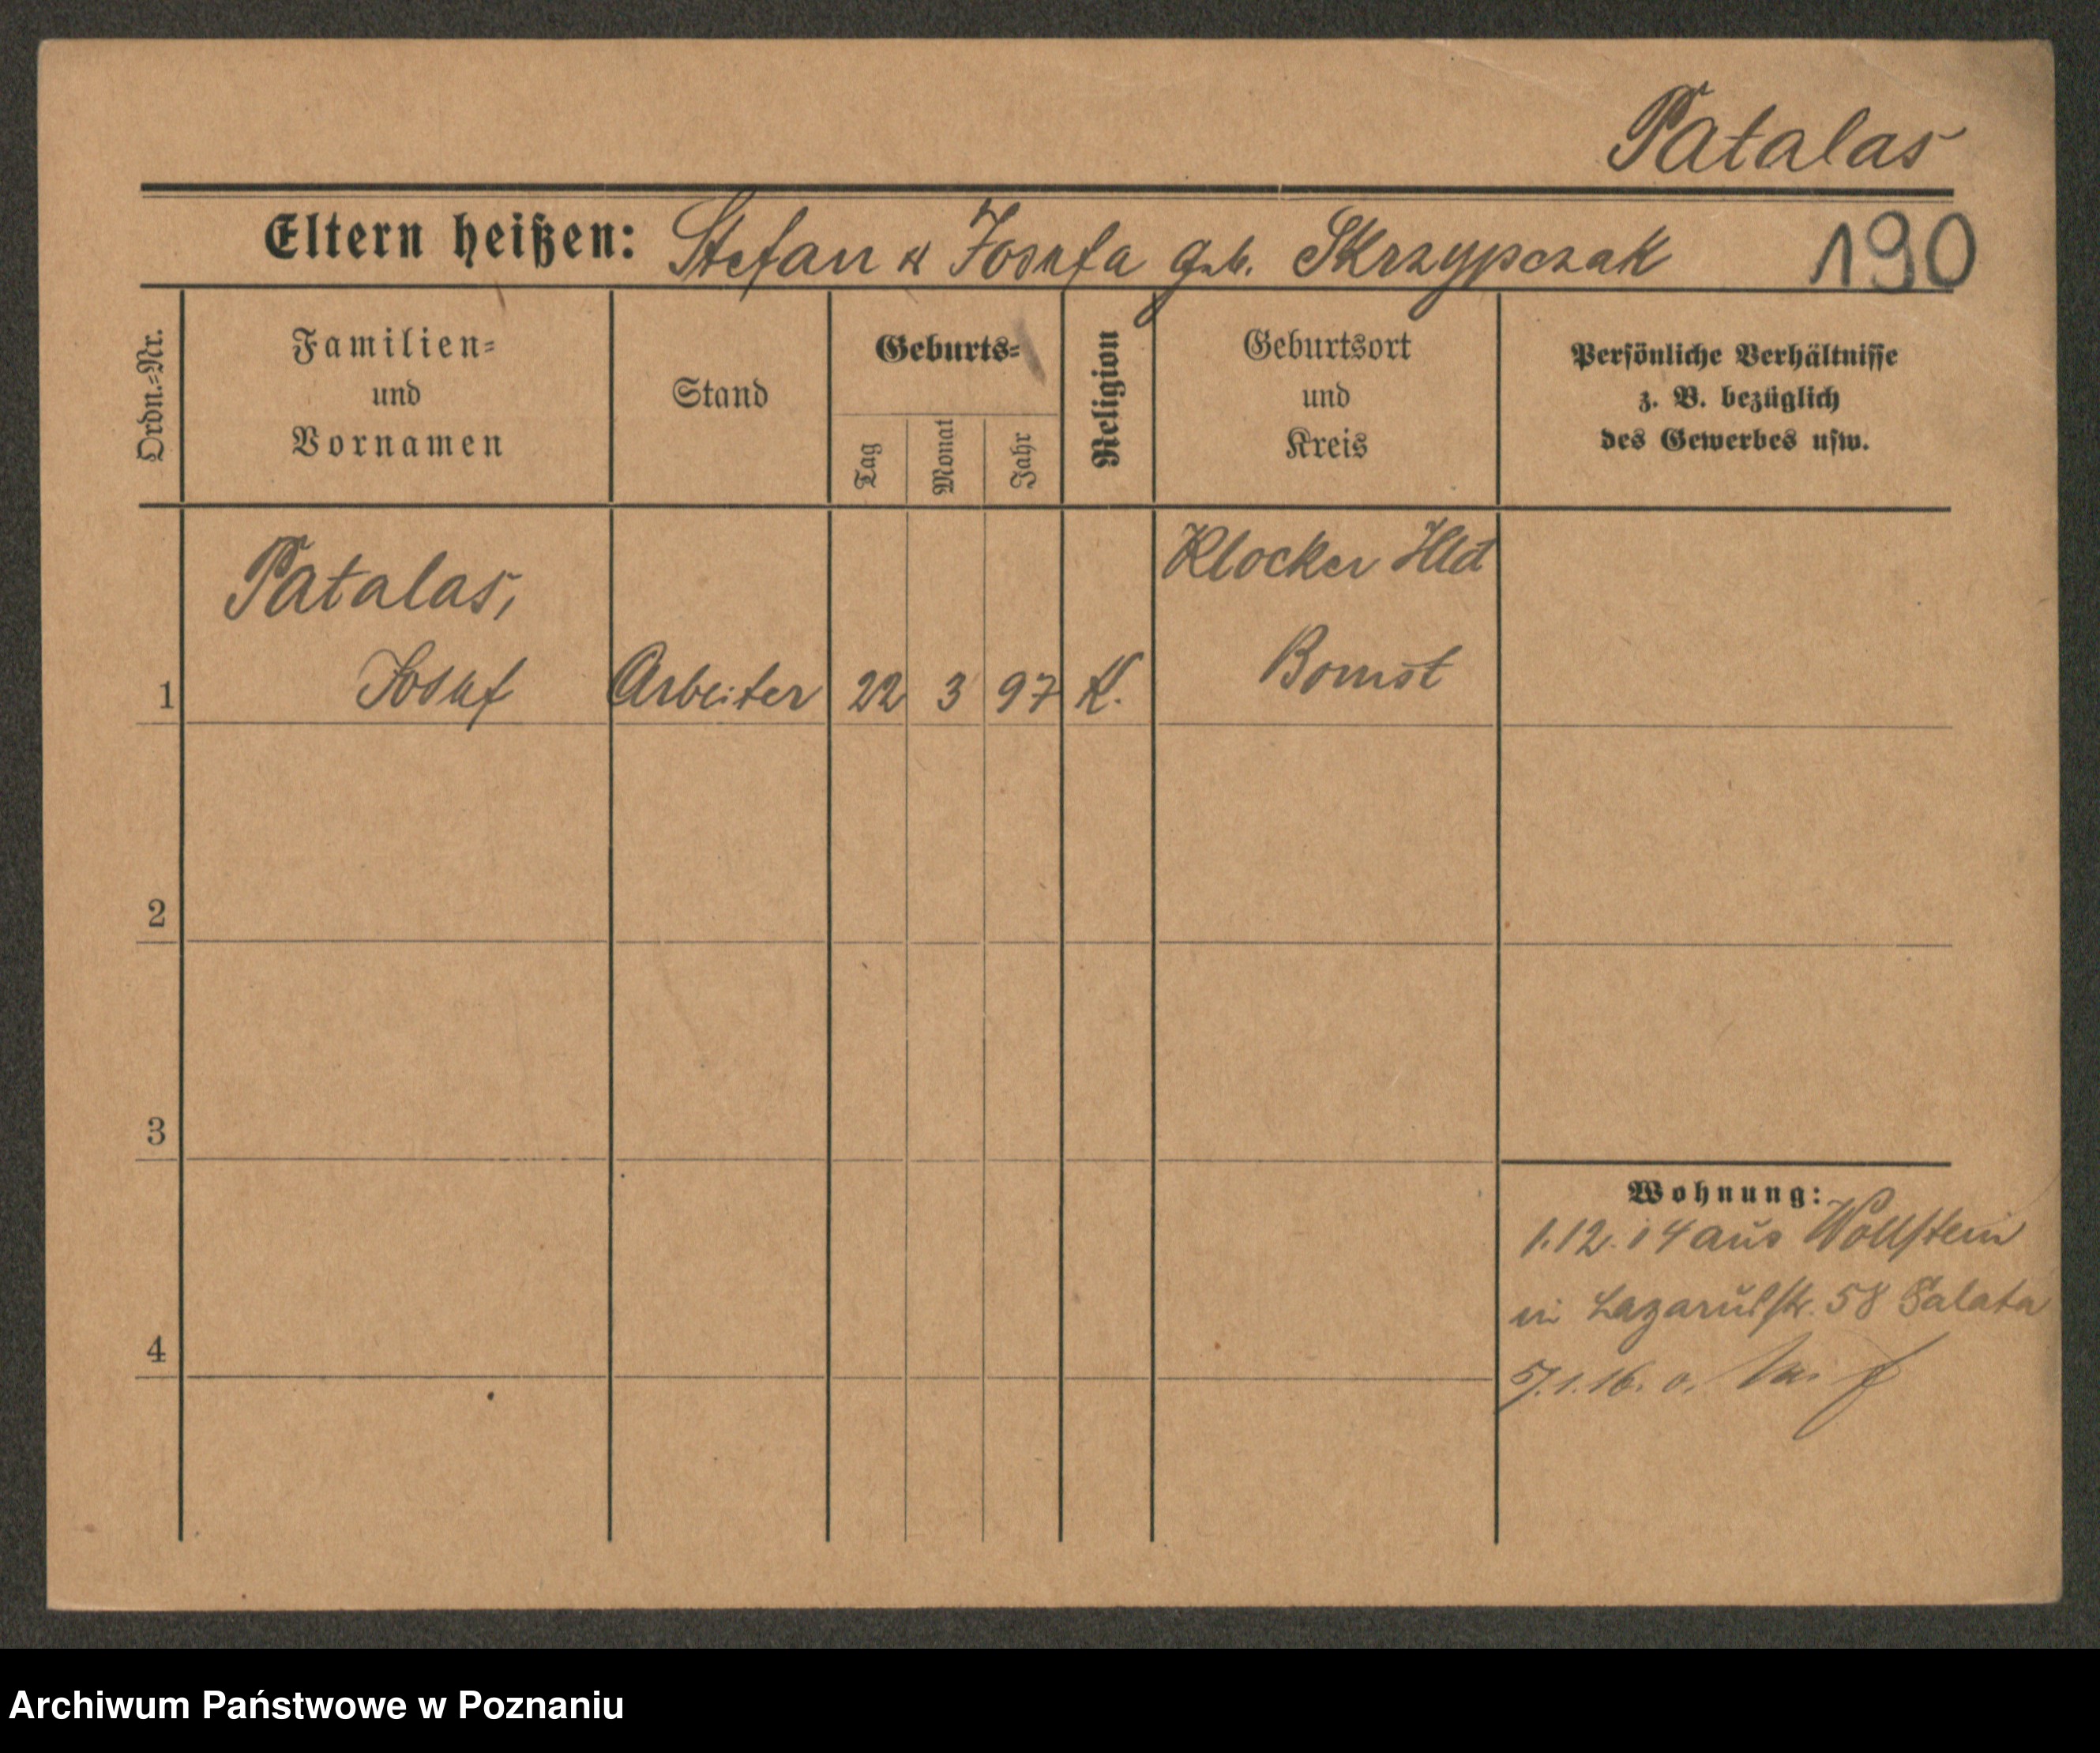 Patalas
Eltern heißen: Stefan u Josefa geb. Skrzypczak 190
Ordn.=Nr.
Familien=
und
Vornamen
Stand
Geburts=
Tag
Monat
Jahr
Religion
Geburtsort
und
Kreis
Persönliche Verhältnisse
z. B. bezüglich
des Gewerbes usw.
Patalas,
Klocker Hld
1 Josef Arbeiter 22 3 97 K. Bomst
2
3
Wohnung:
1.12.14 aus Wollstein
in Lazarusstr. 58 Salata
4
5/.1.16. o.
Archiwum Państwowe w Poznaniu